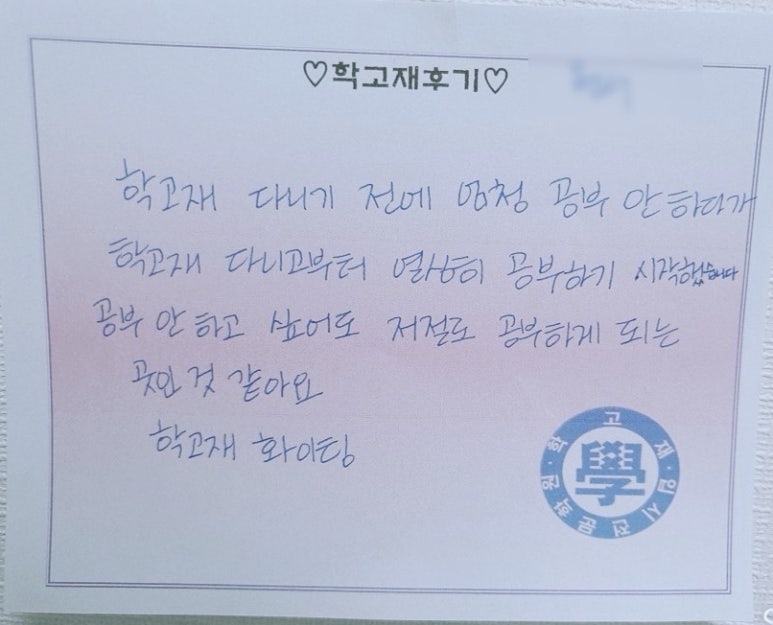 ♡학고재후기♡
학고재 다니기 전에 엄청 공부 안 하다가
학고재 다니고부터 열심히 공부하기 시작했습니다
공부 안 하고 싶어도 저절로 공부하게 되는
곳인 것 같아요
학고재 화이팅
학고재·입시전문학원·
學